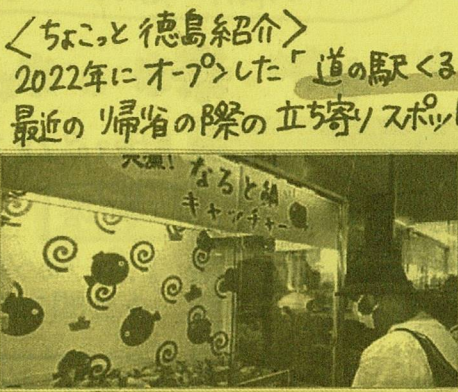 〈ちょこっと 徳島紹介〉
2022年にオープンした「道の駅くる
最近の帰省の際の立ち寄りスポッ
大漁!
なると鯛
キャッチャー